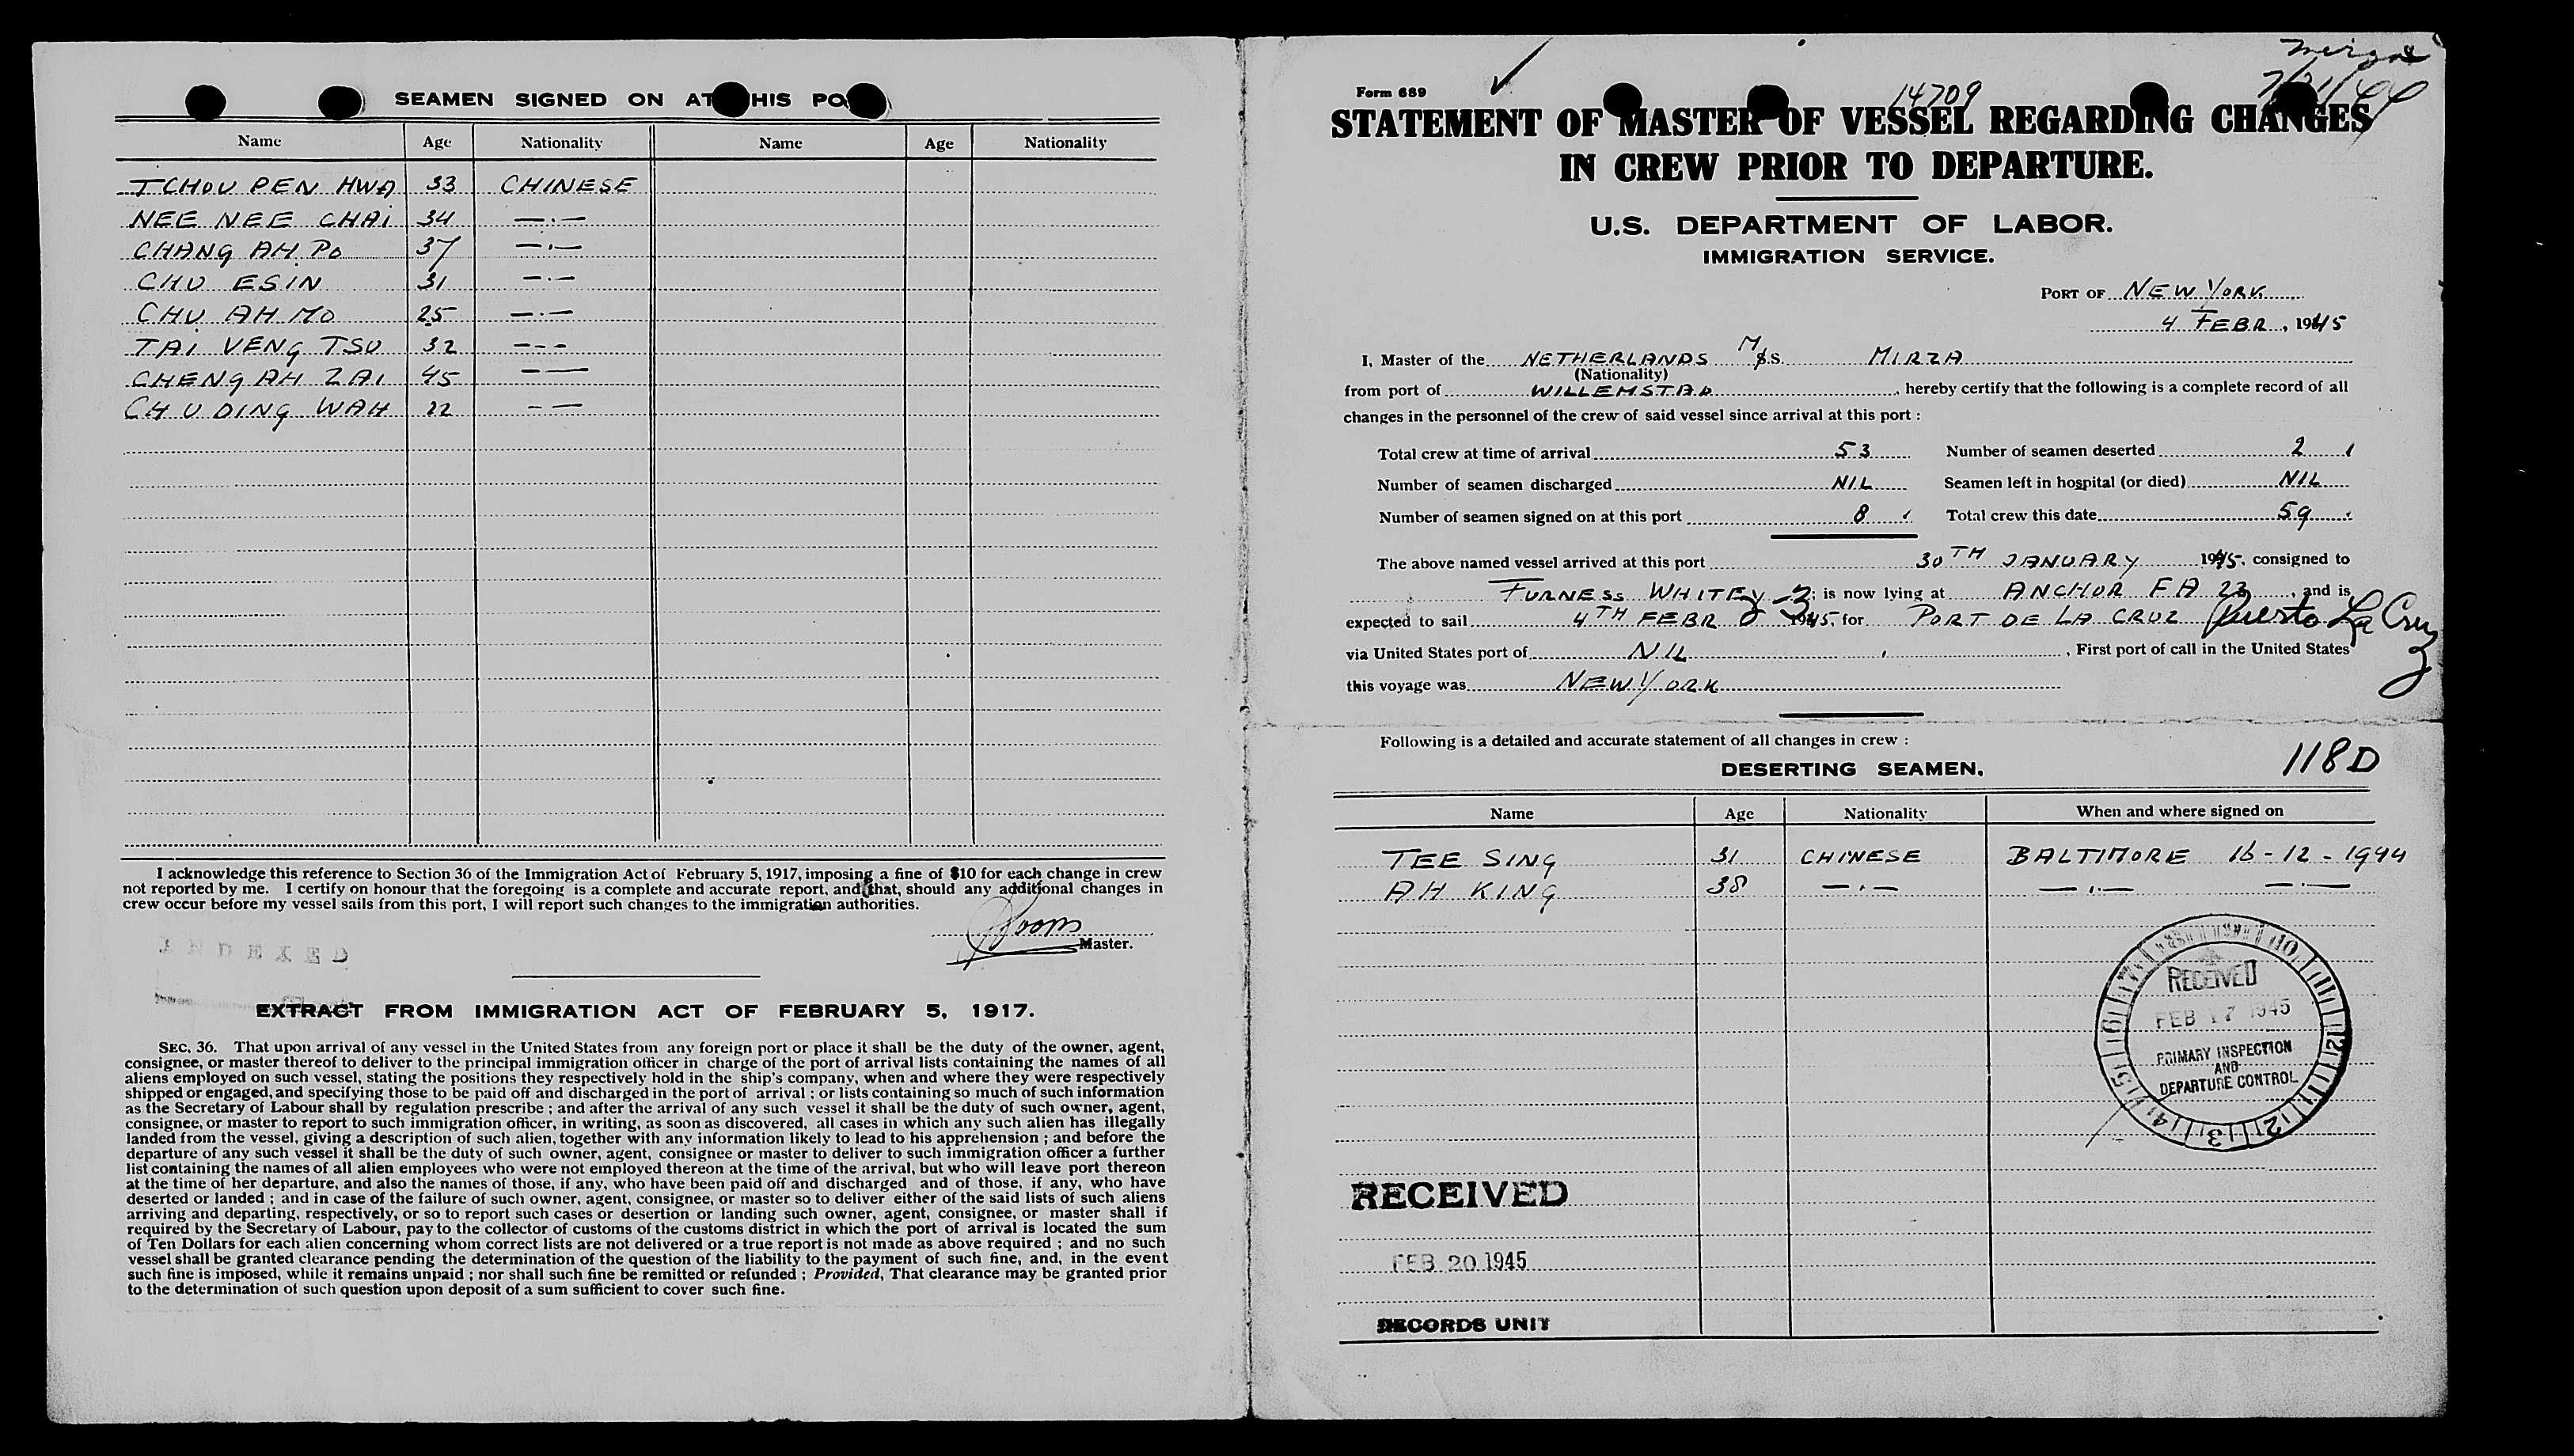 SEAMEN SIGNED ON AT THIS PO
Name Age Nationality Name Age Nationality
TCHOU PEN HWA 33 CHINESE
NEE NEE CHAI 34 —·—
CHANG AH PO 37 —·—
CHU ESIN 31 —·—
CHU AH MO 25 —·—
TAI VENG TSU 32 ---
CHENG AH ZAI 45 — —
CHU DING WAH 22 — —
I acknowledge this reference to Section 36 of the Immigration Act of February 5, 1917, imposing a fine of $10 for each change in crew
not reported by me. I certify on honour that the foregoing is a complete and accurate report, and that, should any additional changes in
crew occur before my vessel sails from this port, I will report such changes to the immigration authorities.
Master.
INDEXED
EXTRACT FROM IMMIGRATION ACT OF FEBRUARY 5, 1917.
SEC. 36. That upon arrival of any vessel in the United States from any foreign port or place it shall be the duty of the owner, agent,
consignee, or master thereof to deliver to the principal immigration officer in charge of the port of arrival lists containing the names of all
aliens employed on such vessel, stating the positions they respectively hold in the ship's company, when and where they were respectively
shipped or engaged, and specifying those to be paid off and discharged in the port of arrival ; or lists containing so much of such information
as the Secretary of Labour shall by regulation prescribe ; and after the arrival of any such vessel it shall be the duty of such owner, agent,
consignee, or master to report to such immigration officer, in writing, as soon as discovered, all cases in which any such alien has illegally
landed from the vessel, giving a description of such alien, together with any information likely to lead to his apprehension ; and before the
departure of any such vessel it shall be the duty of such owner, agent, consignee or master to deliver to such immigration officer a further
list containing the names of all alien employees who were not employed thereon at the time of the arrival, but who will leave port thereon
at the time of her departure, and also the names of those, if any, who have been paid off and discharged and of those, if any, who have
deserted or landed ; and in case of the failure of such owner, agent, consignee, or master so to deliver either of the said lists of such aliens
arriving and departing, respectively, or so to report such cases or desertion or landing such owner, agent, consignee, or master shall if
required by the Secretary of Labour, pay to the collector of customs of the customs district in which the port of arrival is located the sum
of Ten Dollars for each alien concerning whom correct lists are not delivered or a true report is not made as above required ; and no such
vessel shall be granted clearance pending the determination of the question of the liability to the payment of such fine, and, in the event
such fine is imposed, while it remains unpaid ; nor shall such fine be remitted or refunded ; Provided, That clearance may be granted prior
to the determination of such question upon deposit of a sum sufficient to cover such fine.
Form 689
14709
STATEMENT OF MASTER OF VESSEL REGARDING CHANGES
IN CREW PRIOR TO DEPARTURE.
U.S. DEPARTMENT OF LABOR.
IMMIGRATION SERVICE.
PORT OF NEW YORK
4 FEBR, 1945
I, Master of the NETHERLANDS M/S.S. MIRZA
(Nationality)
from port of WILLEMSTAD, hereby certify that the following is a complete record of all
changes in the personnel of the crew of said vessel since arrival at this port :
Total crew at time of arrival 53 Number of seamen deserted 2
Number of seamen discharged NIL Seamen left in hospital (or died) NIL
Number of seamen signed on at this port 8 Total crew this date 59
The above named vessel arrived at this port 30TH JANUARY 1945, consigned to
FURNESS WHITEY ; is now lying at ANCHOR FA 23, and is
expected to sail 4TH FEBR 1945, for PORT DE LA CRUZ Puerto La Cruz
via United States port of NIL, First port of call in the United States
this voyage was NEW YORK
Following is a detailed and accurate statement of all changes in crew :
118D
DESERTING SEAMEN.
Name Age Nationality When and where signed on
TEE SING 31 CHINESE BALTIMORE 16-12-1944
AH KING 38 —·— —·— —·—
RECEIVED
FEB 17 1945
PRIMARY INSPECTION
AND
DEPARTURE CONTROL
RECEIVED
FEB 20 1945
RECORDS UNIT